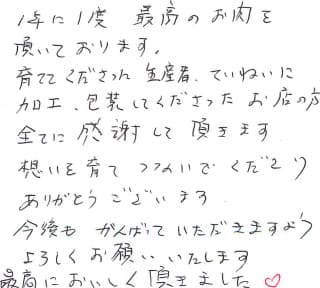 1年に1度 最高のお肉を
頂いております。
育ててくださった生産者、ていねいに
加工、包装してくださったお店の方
全てに感謝して頂きます
想いを育てつないでくださり
ありがとうございます
今後もがんばっていただきますよう
よろしくお願いいたします
最高においしく頂きました♡